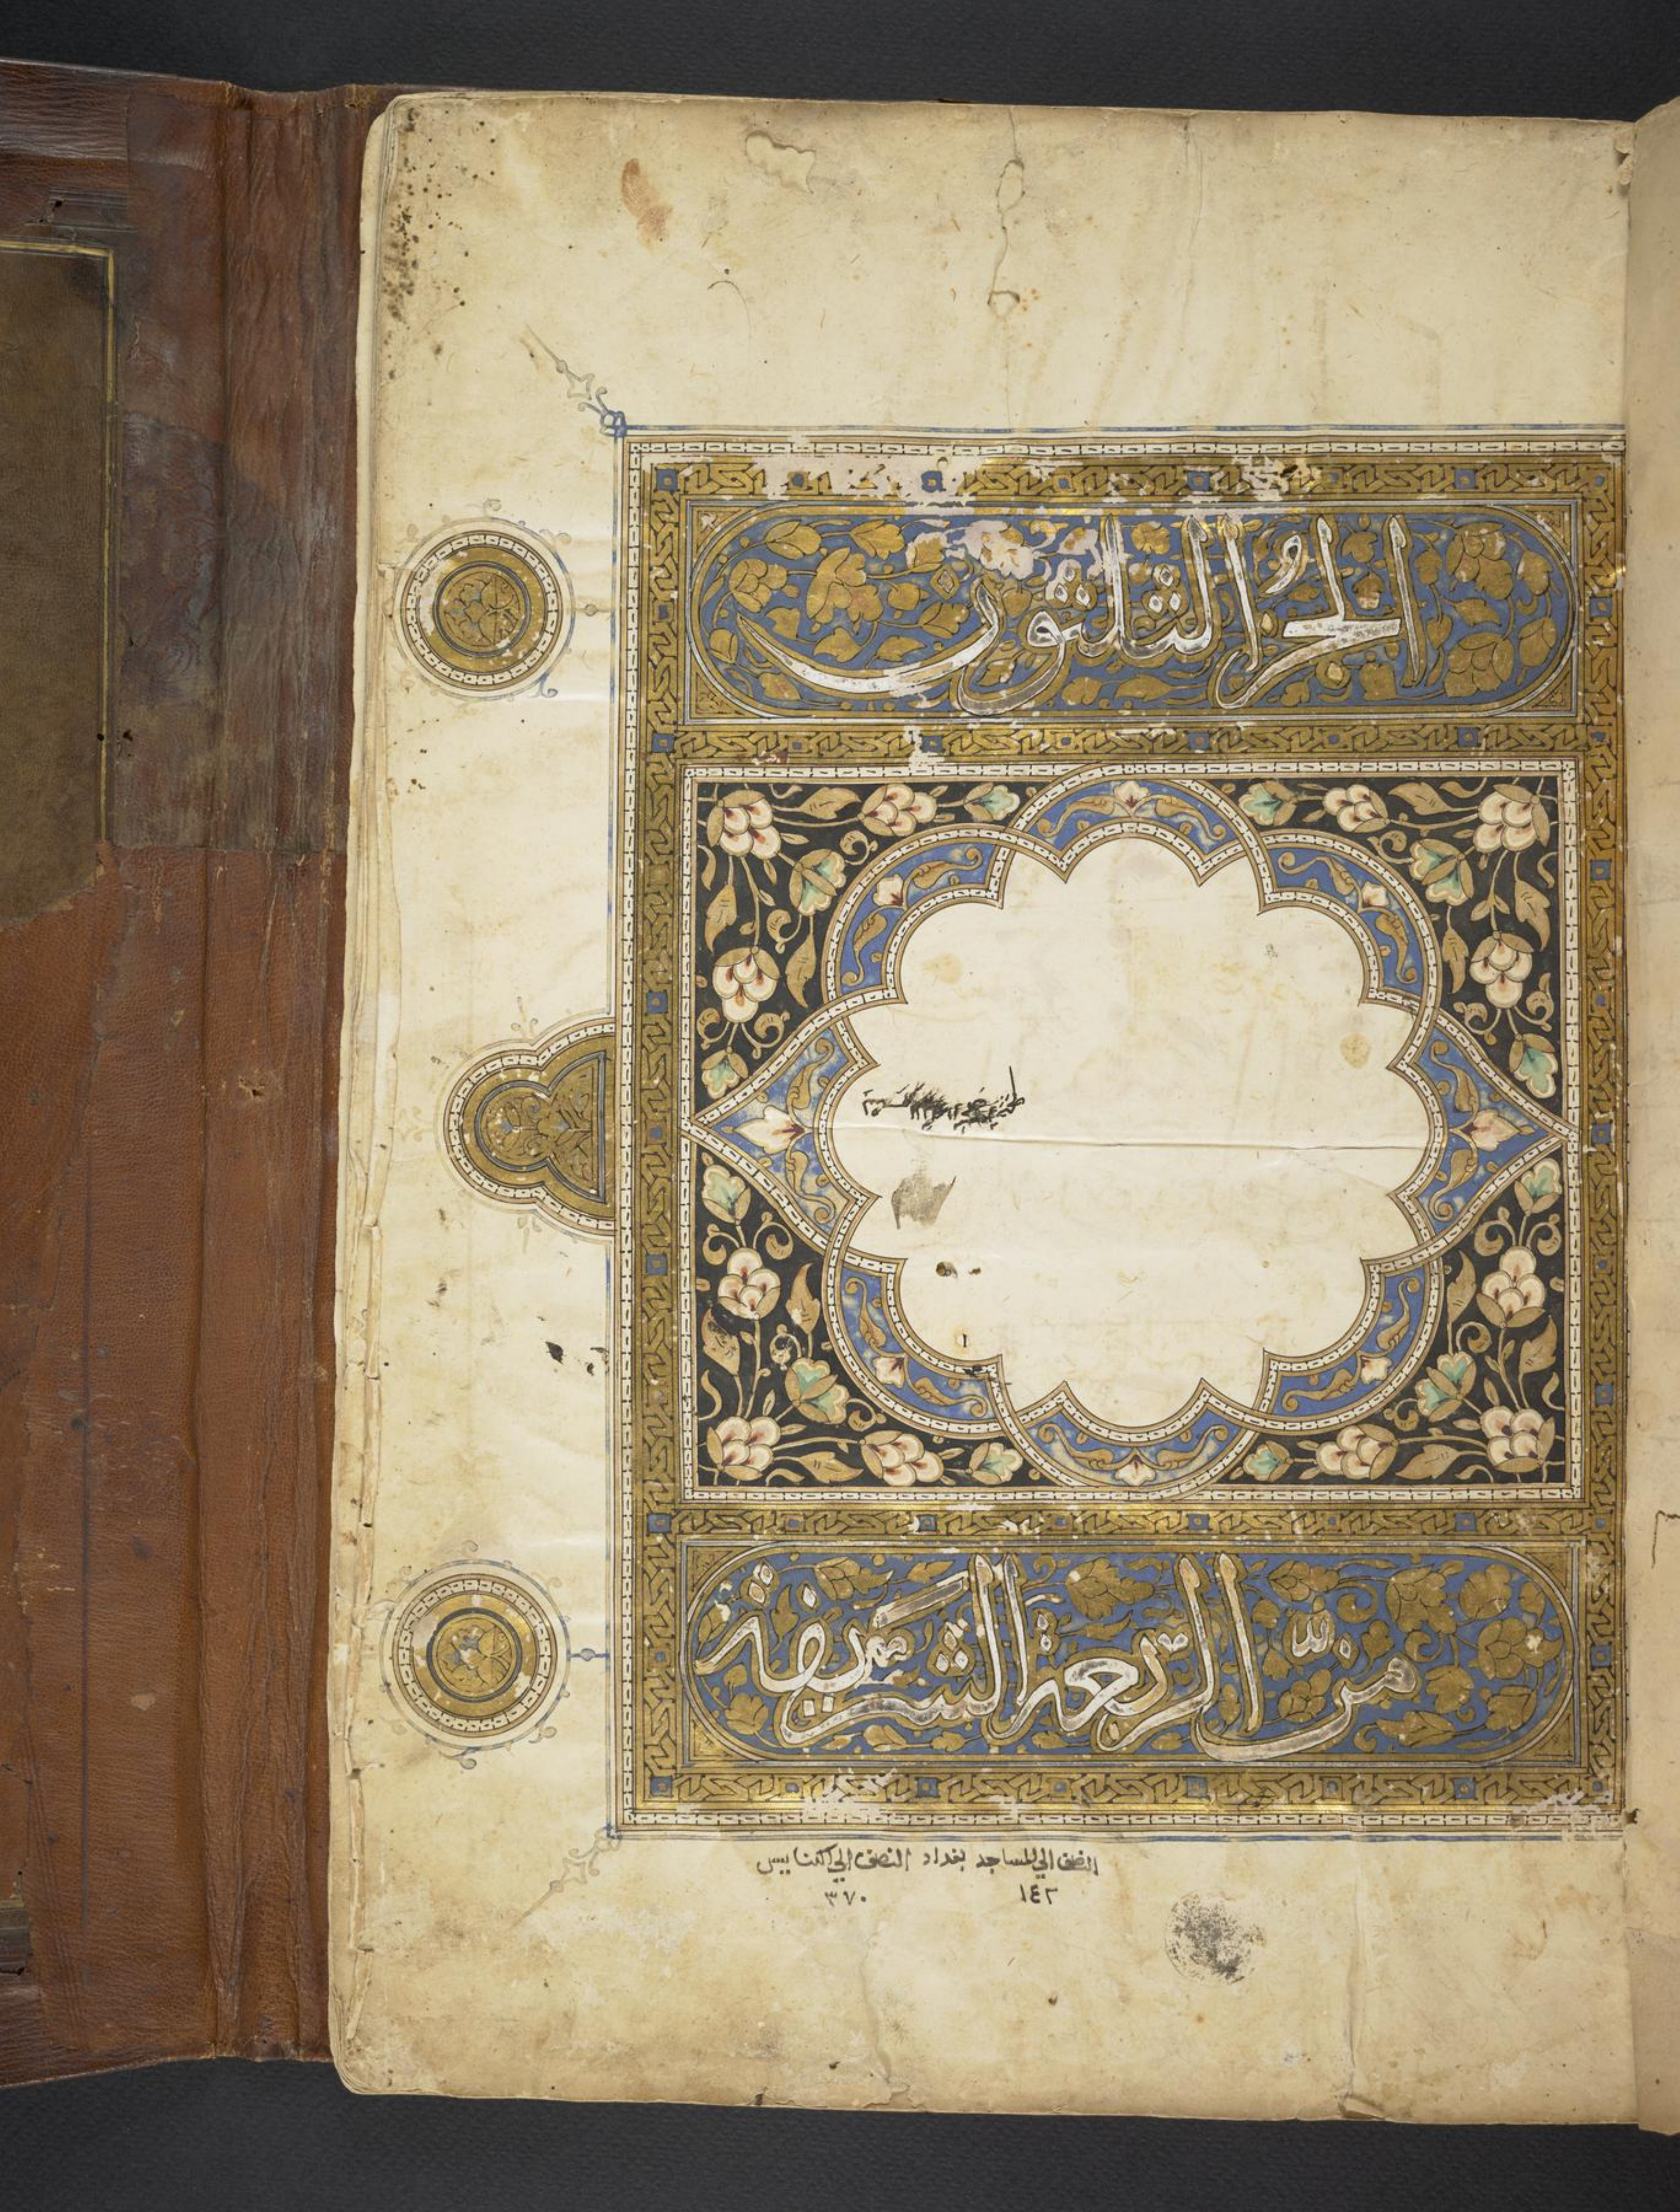 الجزؤ الثلثون
من الربعة الشريفة
النصف الي المساجد بغداد النصف الي الكنايس
١٤٢ ٣٧٠